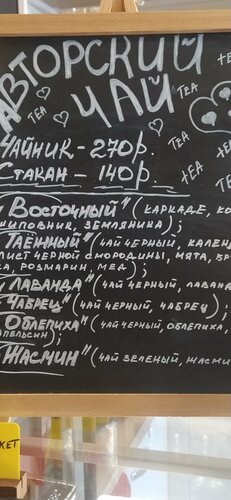 АВТОРСКИЙ
ЧАЙ
TEA
TEA
TEA
TEA
TEA
ЧАЙНИК - 270р.
СТАКАН - 140р.
"ВОСТОЧНЫЙ" (КАРКАДЕ, КО
ШИПОВНИК, ЗЕМЛЯНИКА);
"ТАЁЖНЫЙ" (ЧАЙ ЧЕРНЫЙ, КАЛЕН
ЛИСТ ЧЕРНОЙ СМОРОДИНЫ, МЯТА, БР
КА, РОЗМАРИН, МЕД);
"ЛАВАНДА" (ЧАЙ ЧЕРНЫЙ, ЛАВАН
"ЧАБРЕЦ" (ЧАЙ ЧЕРНЫЙ, ЧАБРЕЦ);
"ОБЛЕПИХА" (ЧАЙ ЧЕРНЫЙ, ОБЛЕПИХА,
АПЕЛЬСИН);
"ЖАСМИН" (ЧАЙ ЗЕЛЕНЫЙ, ЖАСМИ
КЕТ